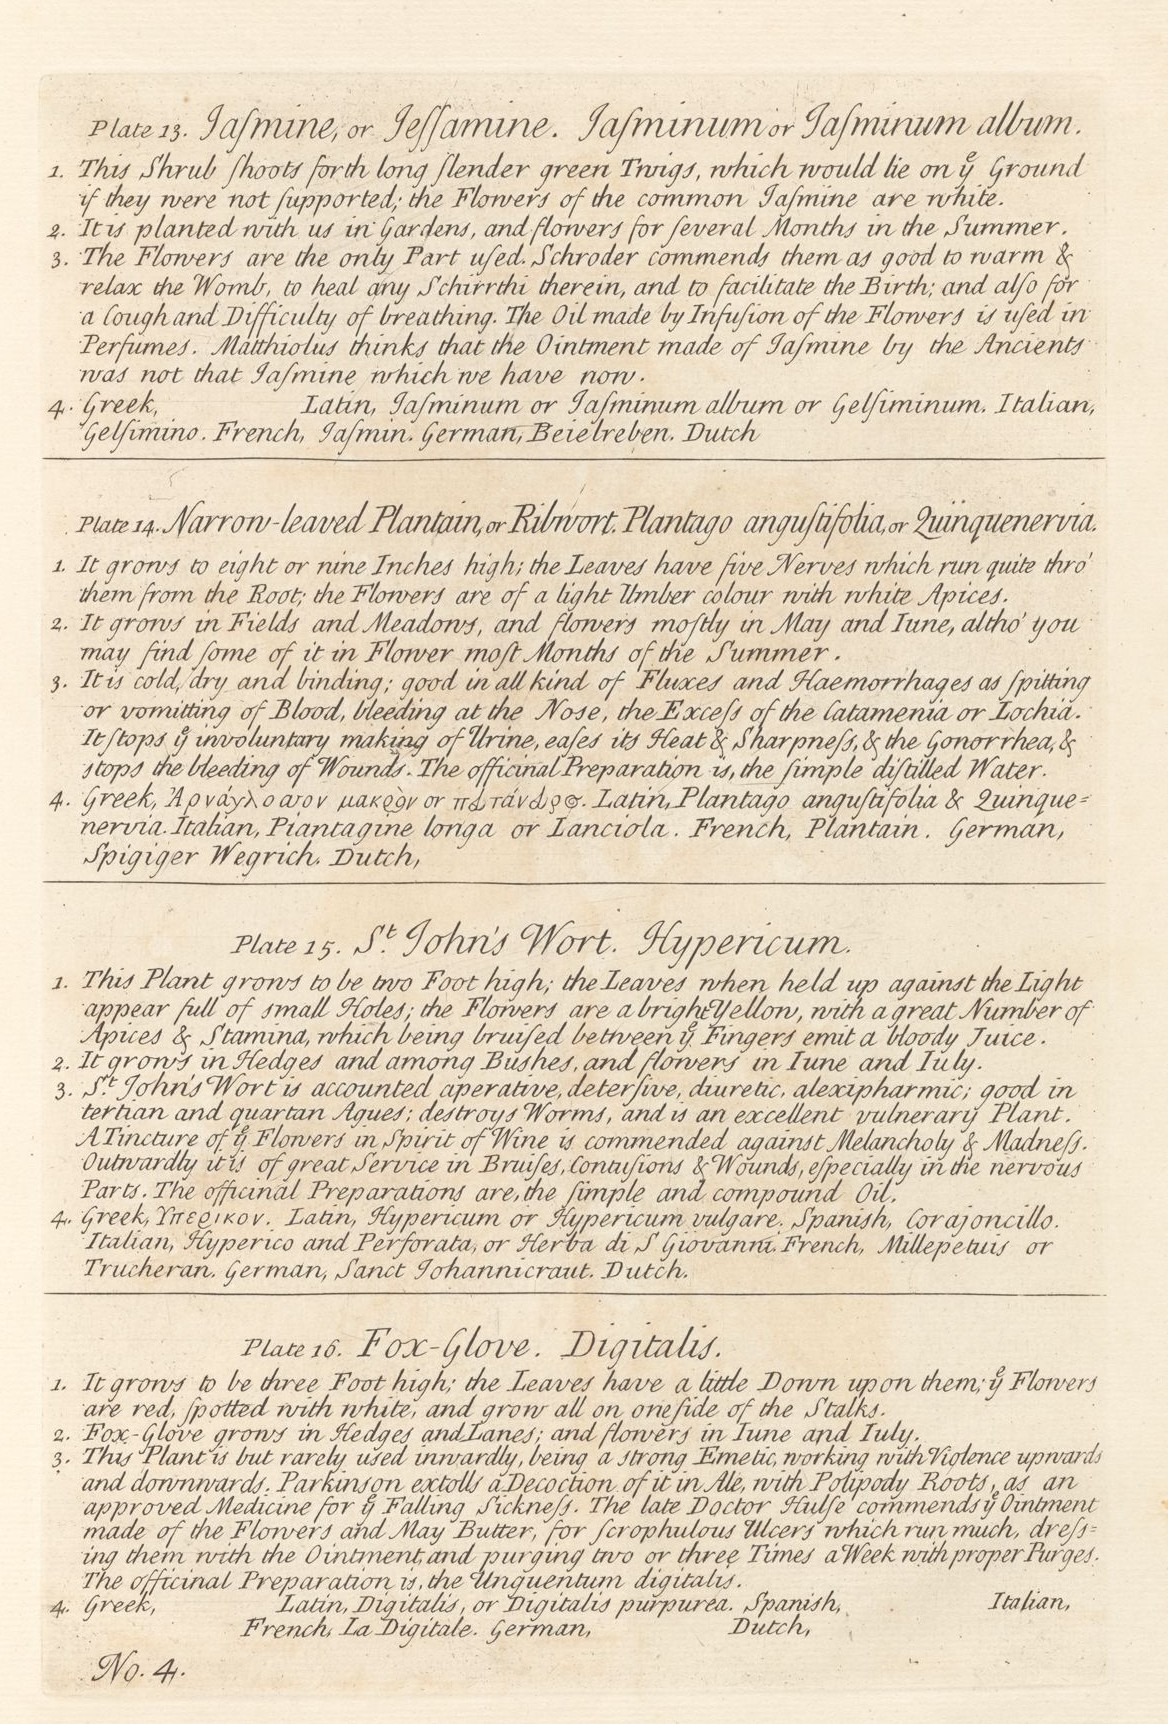 Plate 13. Jaſmine, or Jeſſamine. Jaſminum or Jaſminum album.
1. This Shrub ſhoots forth long ſlender green Twigs, which would lie on yͤ Ground
if they were not ſupported; the Flowers of the common Jaſmine are white.
2. It is planted with us in Gardens, and flowers for ſeveral Months in the Summer.
3. The Flowers are the only Part uſed. Schroder commends them as good to warm &
relax the Womb, to heal any Schirrthi therein, and to facilitate the Birth; and alſo for
a Cough and Difficulty of breathing. The Oil made by Infuſion of the Flowers is uſed in
Perfumes. Matthiolus thinks that the Ointment made of Jaſmine by the Ancients
was not that Jaſmine which we have now.
4. Greek, Latin, Jaſminum or Jaſminum album or Gelſiminum. Italian,
Gelſimino. French, Jaſmin. German, Beielreben. Dutch
Plate 14. Narrow-leaved Plantain, or Ribwort. Plantago anguſtifolia, or Quinquenervia.
1. It grows to eight or nine Inches high; the Leaves have five Nerves which run quite thro'
them from the Root; the Flowers are of a light Umber colour with white Apices.
2. It grows in Fields and Meadows, and flowers moſtly in May and Iune, altho' you
may find ſome of it in Flower moſt Months of the Summer.
3. It is cold, dry and binding; good in all kind of Fluxes and Haemorrhages as ſpitting
or vomitting of Blood, bleeding at the Noſe, the Exceſs of the Catamenia or Lochia.
It ſtops yͤ involuntary making of Urine, eaſes its Heat & Sharpneſs, & the Gonorrhea, &
stops the bleeding of Wounds. The officinal Preparation is, the ſimple diſtilled Water.
4. Greek, Ἀρνάγλοσσον μακρὸν or Latin, Plantago anguſtifolia & Quinque=
nervia. Italian, Piantagine longa or Lanciola. French, Plantain. German,
Spigiger Wegrich. Dutch,
Plate 15. Sᵗ. John's Wort. Hypericum.
1. This Plant grows to be two Foot high; the Leaves when held up against the Light
appear full of small Holes; the Flowers are a bright Yellow, with a great Number of
Apices & Stamina, which being bruiſed between yͤ Fingers emit a bloody Juice.
2. It grows in Hedges and among Bushes, and flowers in Iune and Iuly.
3. Sᵗ. John's Wort is accounted aperative, deterſive, diuretic, alexipharmic; good in
tertian and quartan Agues; destroys Worms, and is an excellent vulnerary Plant.
A Tincture of yͤ Flowers in Spirit of Wine is commended against Melancholy & Madneſs.
Outwardly it is of great Service in Bruiſes, Contusions & Wounds, eſpecially in the nervous
Parts. The officinal Preparations are, the ſimple and compound Oil.
4. Greek, Ὑπερικον. Latin, Hypericum or Hypericum vulgare. Spanish, Corajoncillo.
Italian, Hyperico and Perforata, or Herba di S Giovanni. French, Millepetuis or
Trucheran. German, Sanct Johannicraut. Dutch.
Plate 16. Fox-Glove. Digitalis.
1. It grows to be three Foot high; the Leaves have a little Down upon them; yͤ Flowers
are red, ſpotted with white, and grow all on one ſide of the Stalks.
2. Fox-Glove grows in Hedges and Lanes; and flowers in Iune and Iuly.
3. This Plant is but rarely used inwardly, being a strong Emetic, working with Violence upwards
and downwards. Parkinson extolls a Decoction of it in Ale, with Polipody Roots, as an
approved Medicine for yͤ Falling Sickneſs. The late Doctor Hulſe commends yͤ Ointment
made of the Flowers and May Butter, for ſcrophulous Ulcers which run much, dreſs=
ing them with the Ointment, and purging two or three Times a Week with proper Purges.
The officinal Preparation is, the Unguentum digitalis.
4. Greek, Latin, Digitalis, or Digitalis purpurea. Spanish, Italian,
French, La Digitale. German, Dutch,
No. 4.